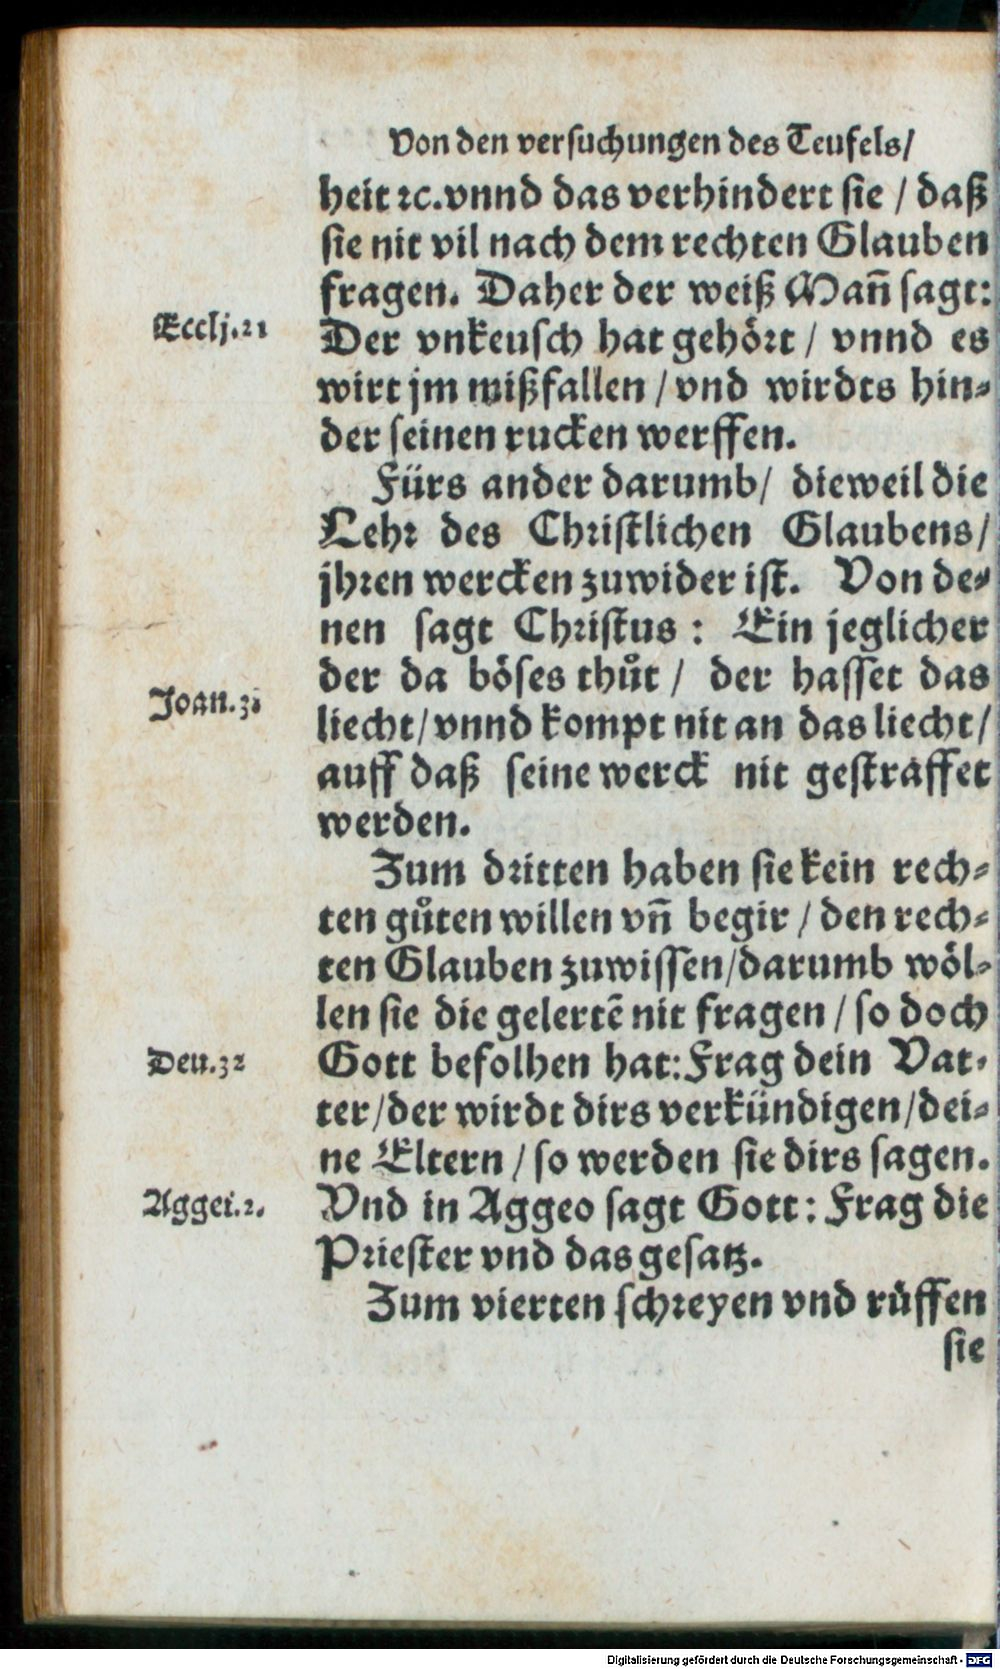 Von den versuchungen des Teufels/
heit ꝛc. vnnd das verhindert sie / daß
sie nit vil nach dem rechten Glauben
fragen. Daher der weiß Mañ sagt:
Ecclj.21
Der vnkeusch hat gehört / vnnd es
wirt jm mißfallen / vnd wirdts hin-
der seinen rucken werffen.
Fürs ander darumb/ dieweil die
Lehr des Christlichen Glaubens/
jhren wercken zuwider ist. Von de-
nen sagt Christus: Ein jeglicher
der da böses thůt / der hasset das
Joan.3.
liecht/ vnnd kompt nit an das liecht/
auff daß seine werck nit gestraffet
werden.
Zum dritten haben sie kein rech-
ten gůten willen vñ begir / den rech-
ten Glauben zuwissen/darumb wöl-
len sie die gelertē nit fragen / so doch
Deu.32
Gott befolhen hat: Frag dein Vat-
ter/der wirdt dirs verkündigen/dei-
ne Eltern / so werden sie dirs sagen.
Aggei.2.
Vnd in Aggeo sagt Gott: Frag die
Priester vnd das gesatz.
Zum vierten schreyen vnd rüffen
sie
Digitalisierung gefördert durch die Deutsche Forschungsgemeinschaft - DFG